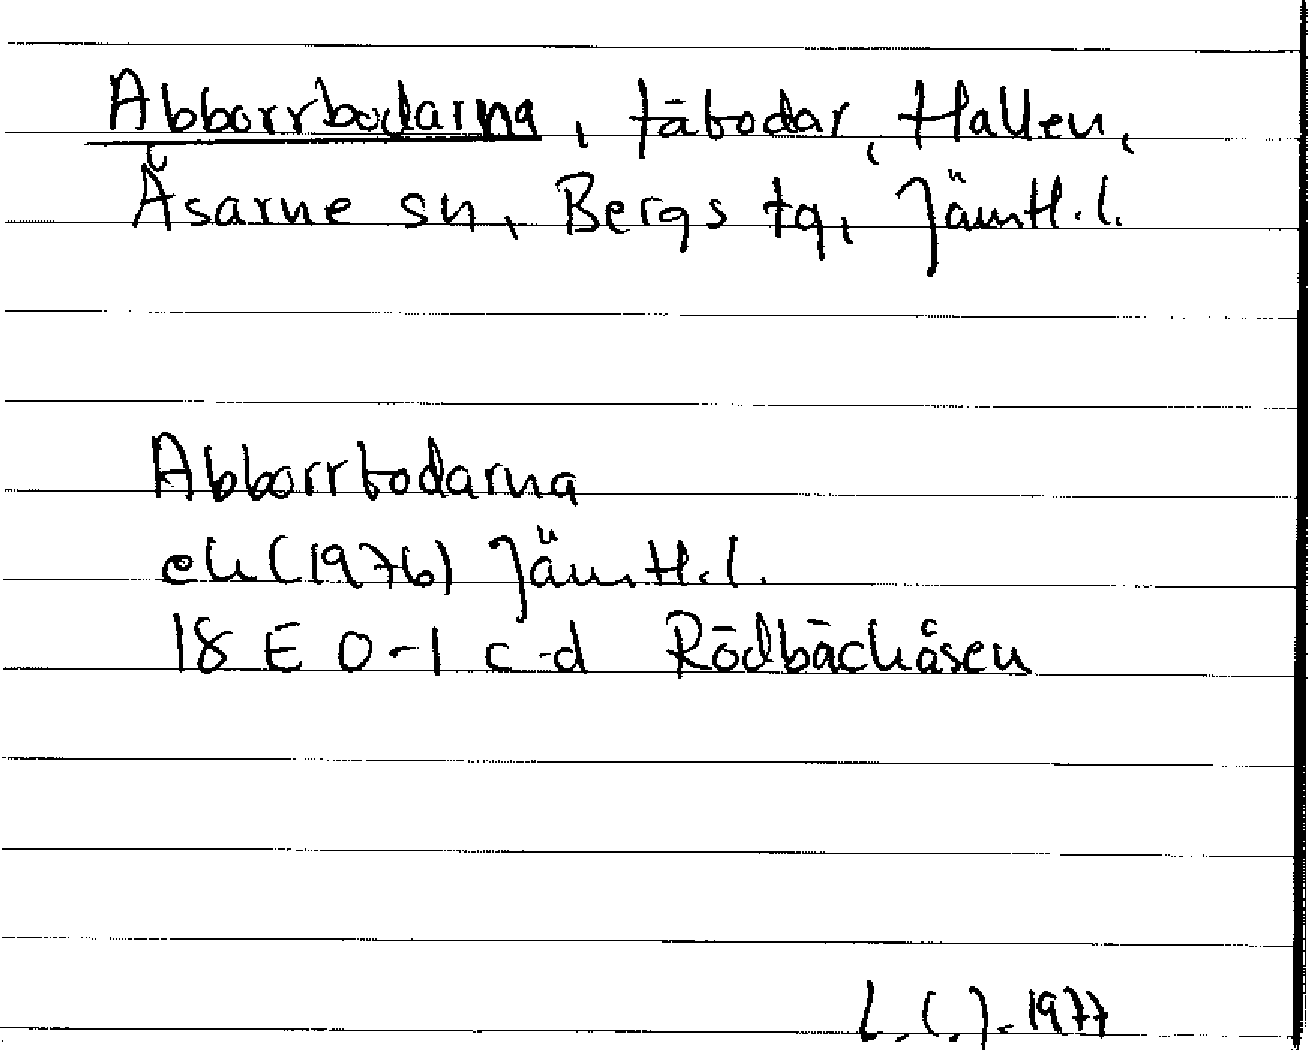 Abborrbodarna, fäbodar, Hallen,
Åsarne sn, Bergs tg, Jämtl.l.
Abborrbodarna
ek (1976) Jämtl.l.
18 E 0-1 c-d Rödbäckåsen
1977